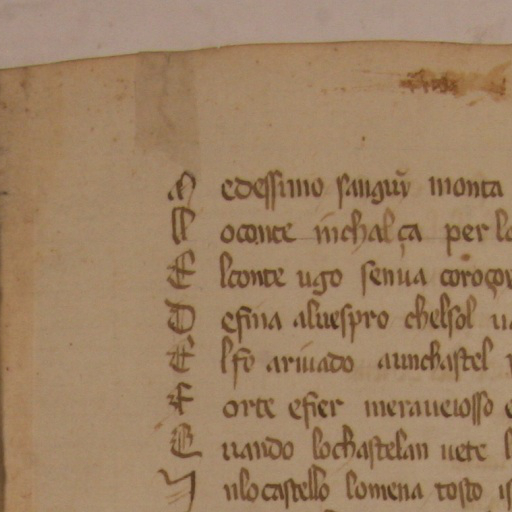 M edessimo sanguý monta
L oconte inchalça per lo
E lconte ugo senua coroço
D efina aluespro chelsol ua
E lfo ariuado aunchastel
F orte efier meraueiosso e
Q uando lochastelan uete l
I nlocastello lomena tosto is